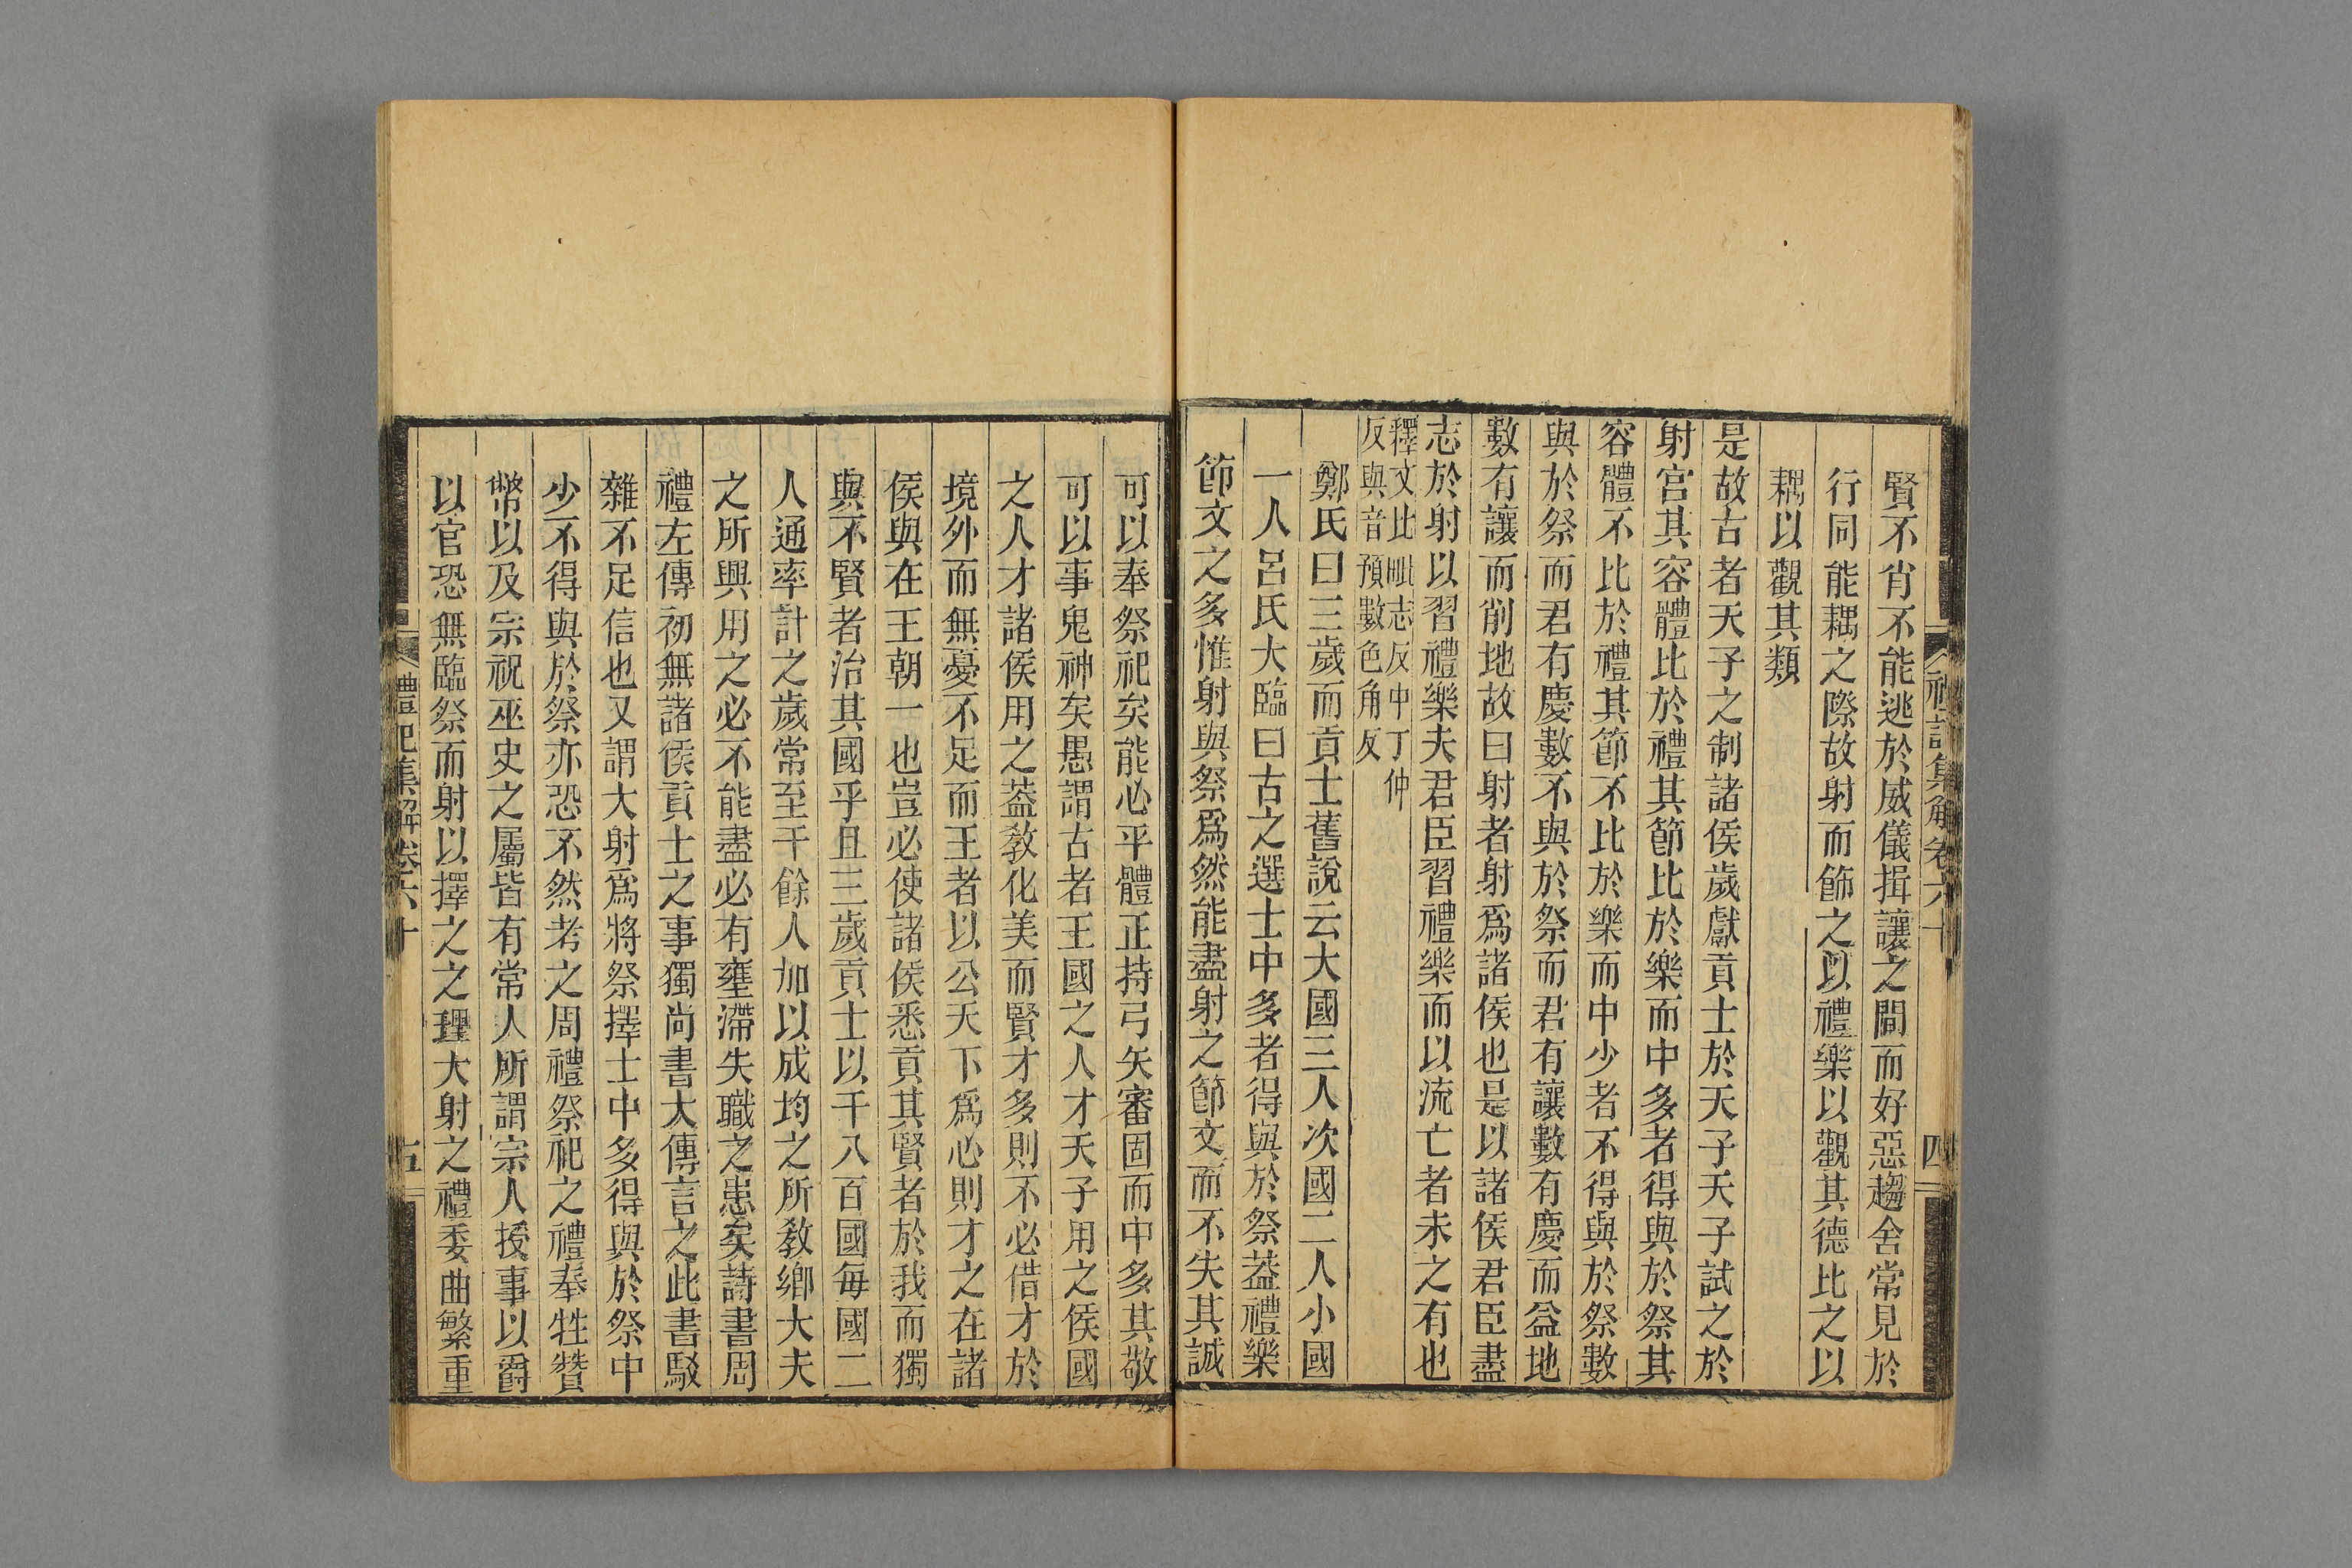 禮記集解卷六十
四
賢不肖不能逃於威儀揖讓之間而好惡趨舍常見於
行同能耦之際故射而飾之以禮樂以觀其德比之以
耦以觀其類
是故古者天子之制諸侯歲獻貢士於天子天子試之於
射宮其容體比於禮其節比於樂而中多者得與於祭其
容體不比於禮其節不比於樂而中少者不得與於祭數
與於祭而君有慶數不與於祭而君有讓數有慶而益地
數有讓而削地故曰射者射爲諸侯也是以諸侯君臣盡
志於射以習禮樂夫君臣習禮樂而以流亡者未之有也
釋文比毗志反中丁仲
反與音預數色角反
鄭氏曰三歲而貢士舊說云大國三人次國二人小國
一人呂氏大臨曰古之選士中多者得與於祭葢禮樂
節文之多惟射與祭爲然能盡射之節文而不失其誠
可以奉祭祀矣能心平體正持弓矢審固而中多其敬
可以事鬼神矣愚謂古者王國之人才天子用之侯國
之人才諸侯用之葢敎化美而賢才多則不必借才於
境外而無憂不足而王者以公天下爲心則才之在諸
侯與在王朝一也豈必使諸侯悉貢其賢者於我而獨
與不賢者治其國乎且三歲貢士以千八百國每國二
人通率計之歲常至千餘人加以成均之所敎鄉大夫
之所興用之必不能盡必有壅滯失職之患矣詩書周
禮左傳初無諸侯貢士之事獨尚書大傳言之此書駁
雜不足信也又謂大射爲將祭擇士中多得與於祭中
少不得與於祭亦恐不然考之周禮祭祀之禮奉牲贊
幣以及宗祝巫史之屬皆有常人所謂宗人授事以爵
以官恐無臨祭而射以擇之之理大射之禮委曲繁重
禮記集解卷六十
五